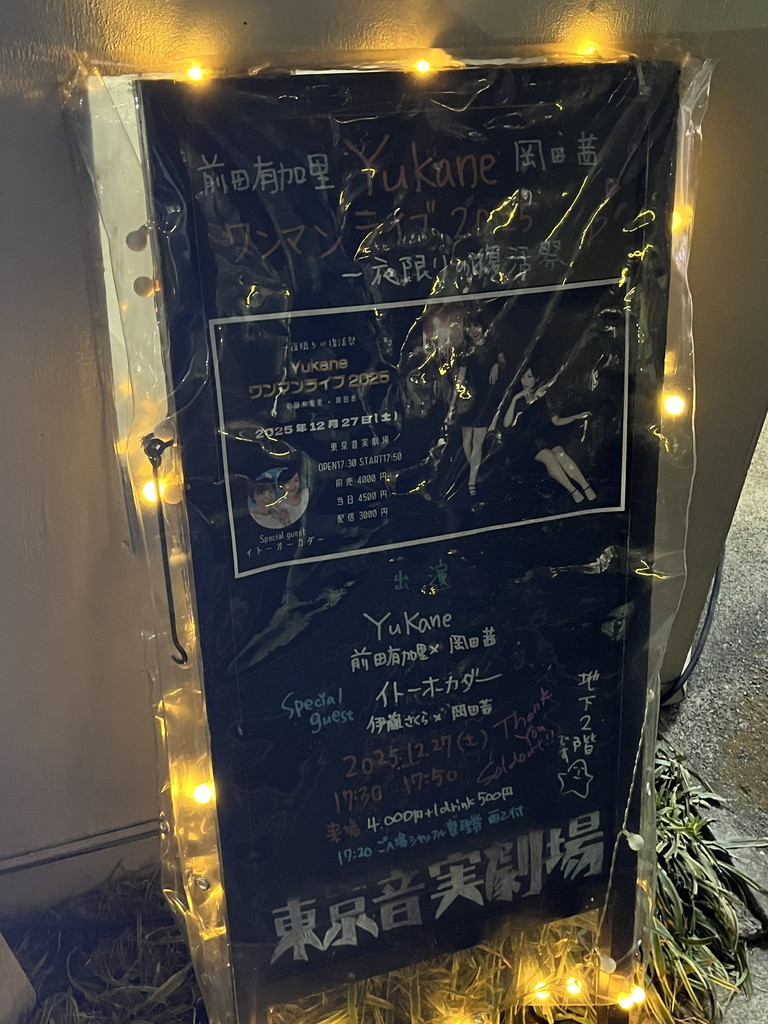 前田有加里 Yukane 岡田茜
ワンマンライブ 2025
一夜限りの復活祭
一夜限りの復活祭
Yukane
ワンマンライブ2025
前田有加里 × 岡田茜
2025年12月27日(土)
東京音実劇場
OPEN17:30 START17:50
前売 4000 円
当日 4500 円
配信 3000 円
Special guest
イトーオーカダー
出演
Yukane
前田有加里×岡田茜
Special guest
イトーオーカダー
伊藤さくら×岡田茜
2025.12.27(土)
17:30 17:50
Thank
You
Soldout!!
地下2階
です
来場 4.000円+1drink 500円
17:20 ご入場シャッフル整理券
東京音実劇場